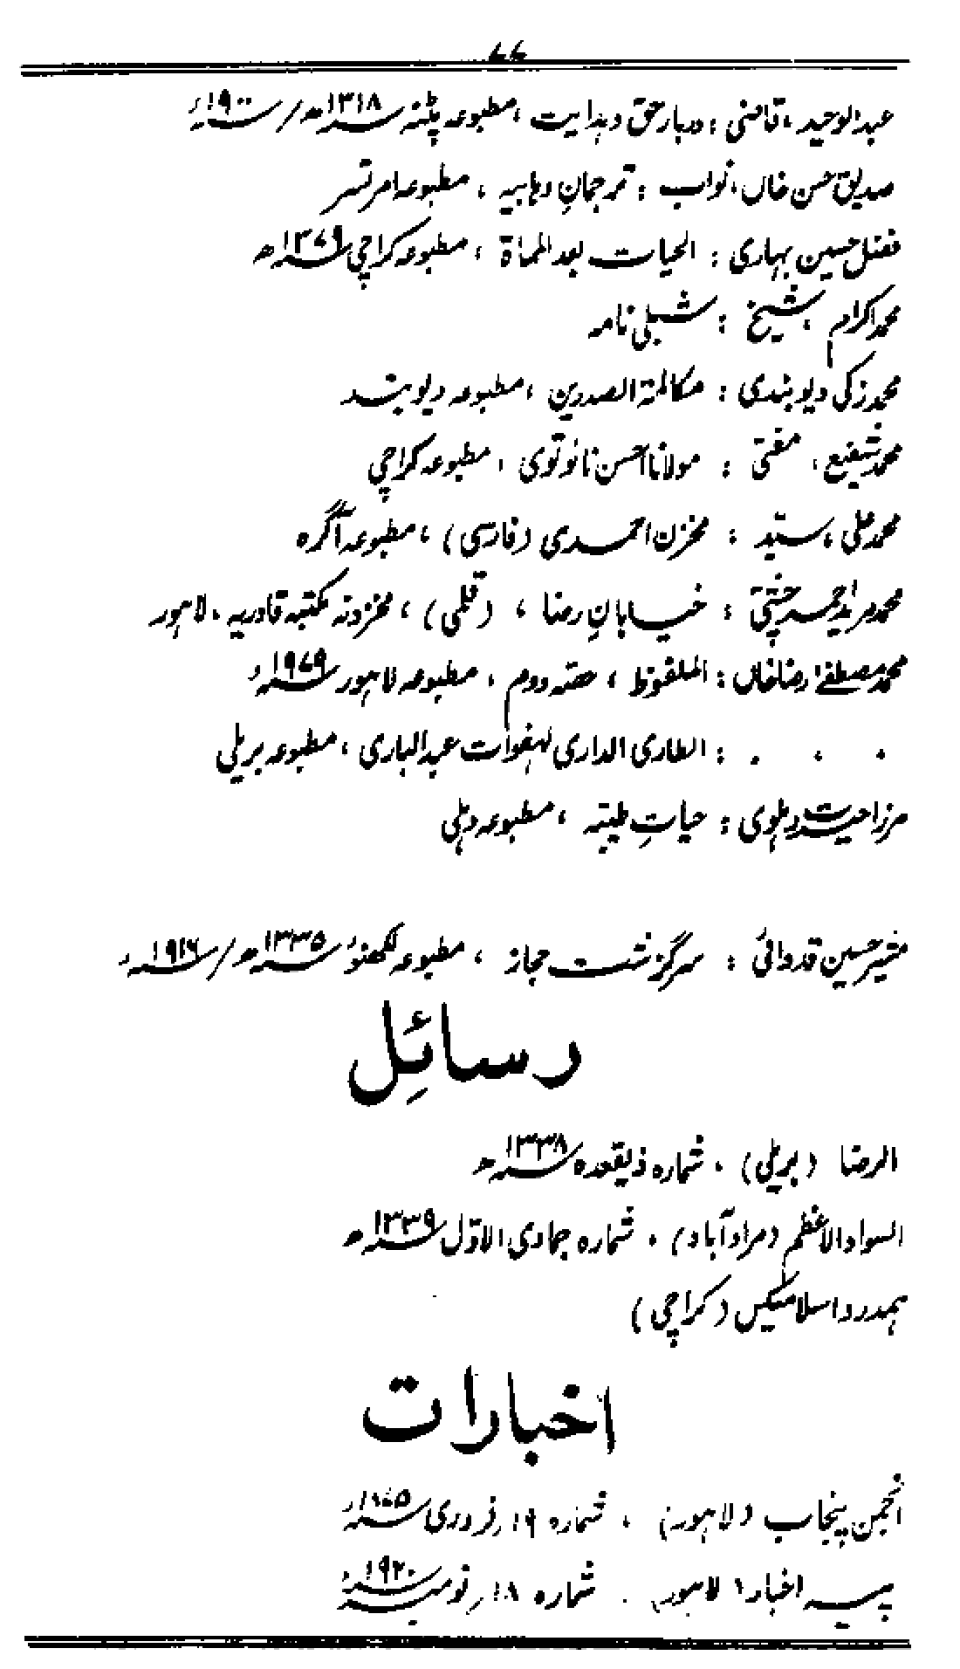 ۷۷
عبدالوحید، قاضی : دربار حق و ہدایت ، مطبوعہ پٹنہ ۱۳۱۸ھ / ۱۹۰۰ء
صدیق حسن خاں، نواب : ترجمانِ وہابیہ ، مطبوعہ امرتسر
فضل حسین بہاری : الحیات بعد المماۃ ، مطبوعہ کراچی ۱۳۷۹ھ
محمد اکرام ، شیخ : شبلی نامہ
محمد زکی دیوبندی : مکالمۃ الصدرین ، مطبوعہ دیوبند
محمد شفیع ، مفتی : مولانا احسن نانوتوی ، مطبوعہ کراچی
محمد علی ، سیّد : مخزن احمدی (فارسی) ، مطبوعہ آگرہ
محمد مرید احمد چشتی : خیابانِ رضا ، (قلمی) ، مخزونہ مکتبہ قادریہ ، لاہور
محمد مصطفےٰ رضا خاں : الملفوظ ، حصّہ دوم ، مطبوعہ لاہور ۱۹۷۹ء
. . . : الطاری الداری لہفوات عبدالباری ، مطبوعہ بریلی
مرزا حیرت دہلوی : حیاتِ طیّبہ ، مطبوعہ دہلی
مشیر حسین قدوائی : سرگزشت حجاز ، مطبوعہ لکھنؤ ۱۳۳۵ھ / ۱۹۱۶ء
رسائِل
الرضا (بریلی) ، شمارہ ذیقعدہ ۱۳۳۸ھ
السواد الاعظم (مرادآباد) ، شمارہ جمادی الاوّل ۱۳۳۹ھ
ہمدرد اسلامیکس (کراچی)
اخبارات
انجمن پنجاب (لاہور) ، شمارہ ۱۹؍فروری
پیسہ اخبار (لاہور) ، شمارہ ۱۸؍نومبر ۱۹۲۰ء